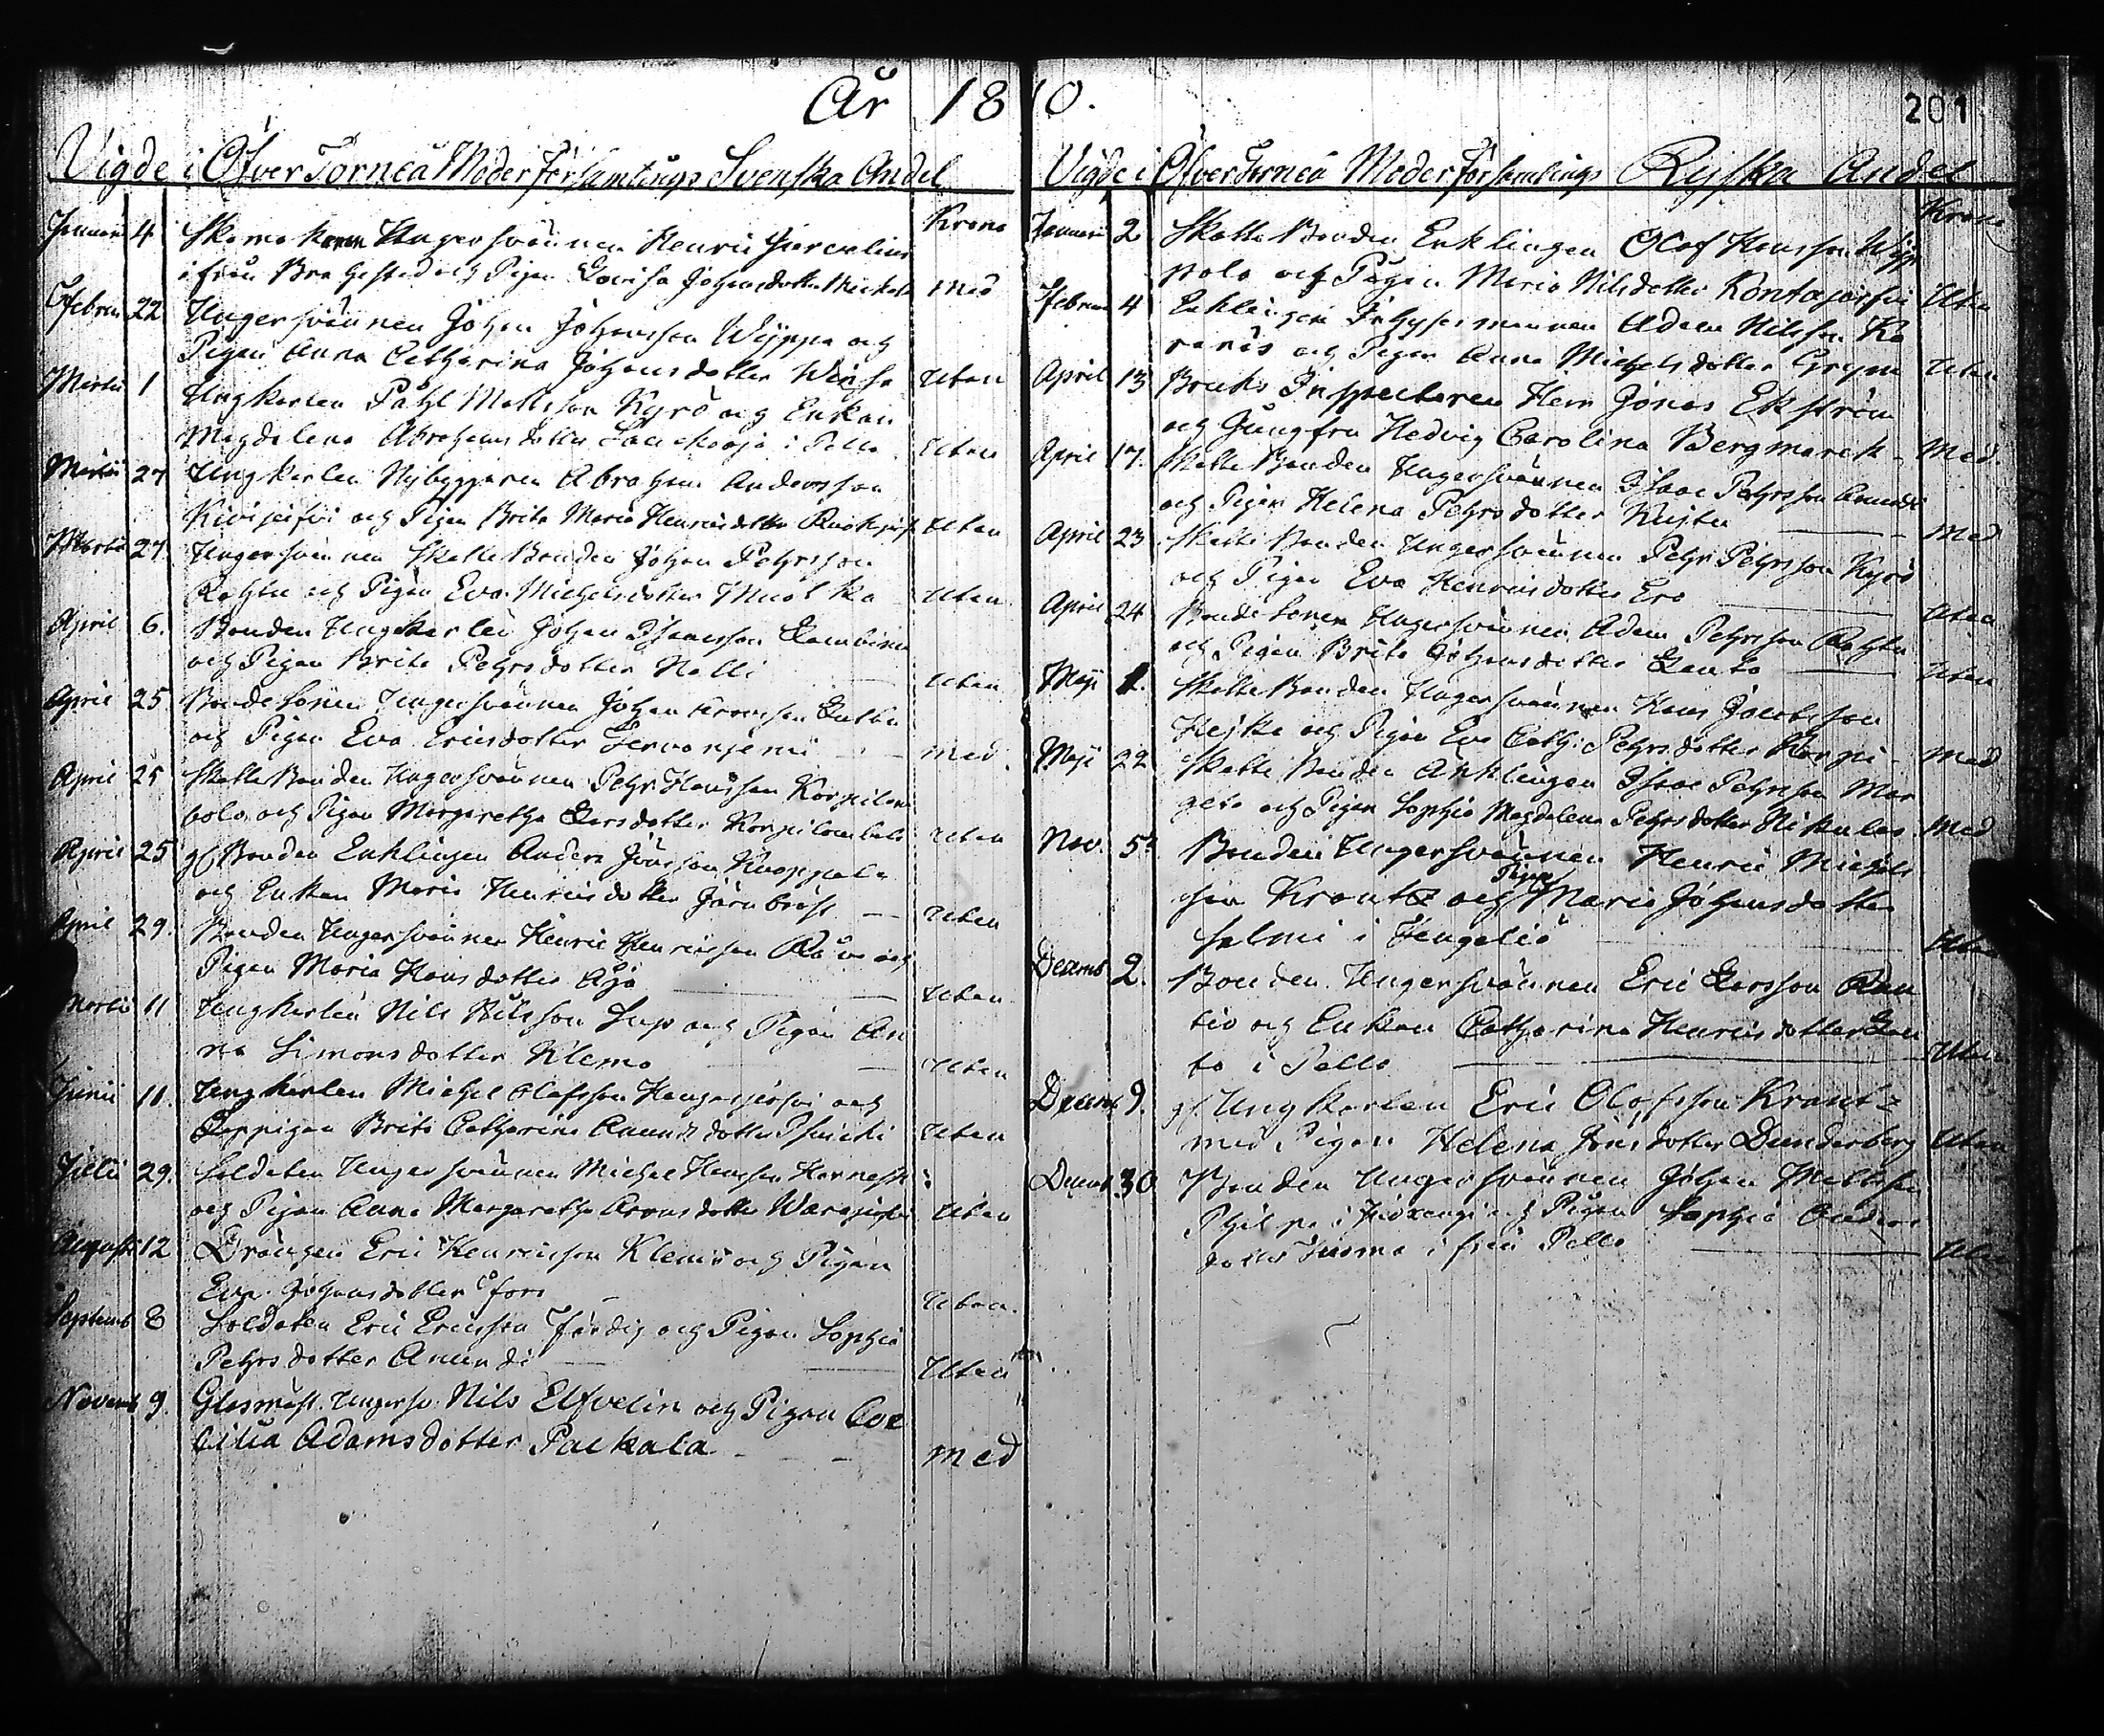 År 1810.
201
Vigde i Öfver Torneå Moder Församlings Svenska Andel
Krona
Januari 4 Skomakaren Ungersvännen Henric
ifrån Brahestad och Pigan Lovisa Johansdotter Med
Februari 22 Ungersvännen Johan Johansson Wyppa och
Pigan Anna Catharina Johansdotter Winsa Utan
Martii 1 Ungkarlen Påhl Mattsson Kyrö och Enkan
Magdalena Abrahamsdotter i Pello Utan
Martii 27 Ungkarlen Nybyggaren Abraham Andersson
Kivijerfvi och Pigan Brita Maria Henricsdotter Utan
Martii 27. Ungersvännen Skatte Bonden Johan Pehrsson
Rahtu och Pigan Eva Michelsdotter Muotka Utan
April 6. Bonden Ungkarlen Johan Isaacsson
och Pigan Brita Pehrsdotter Nalli Utan
April 25 Bondesonen Ungersvännen Johan
och Pigan Eva Ericsdotter med.
April 25 Skatte Bonden Ungersvännen Pehr Hansson Korpilom
bolo och Pigan Margaretha Larsdotter Korpilombolo Utan
April 25 Bonden Enklingen Anders Jönsson
och Enkan Maria Henricsdotter Järnbröst Utan
April 29. Bonden Ungersvännen Henric Henricsson och
Pigan Maria Hansdotter Utan
Martii 11 Ungkarlen Nils Nilsson och Pigan An
na Simonsdotter Klemo Utan
Junii 11. Ungkarlen Michel Olofsson och
Lappigan Brita Catharina Utan
Julii 29. Soldaten Ungersvännen Michel Hansson
och Pigan Anna Margaretha Aronsdotter Utan
Augusti 12 Drängen Eric Henricsson Klemo och Pigan
Eva Johansdotter Fors Utan.
Septemb 8 Soldaten Eric Ericsson Färdig och Pigan Sophia
Pehrsdotter Anundi Utan
Novemb 9. Glasmäst. Ungersv. Nils Elfvelin och Pigan Cæ
cilia Adamsdotter Paekala med
Vigde i Öfver Torneå Moder Församlings Ryska Andel
Krona
Januari 2 Skatte Bonden Enklingen Olof Hansson
polo och Pigan Maria Nilsdotter Kontajerfvi Utan
Februar 4 Enklingen Inhysesmannen Adam Nilsson
och Pigan Anna Michelsdotter Grym Utan
April 13 Bruks Inspectoren Herr Jonas Ekström
och Jungfru Hedvig Carolina Bergmarck Med.
April 17. Skatte Bonden Ungersvännen Isaac Pehrsson Anundi
och Pigan Helena Pehrsdotter Med
April 23 Skatte Bonden Ungersvännen Pehr Pehrsson Kyrö
och Pigan Eva Henricsdotter Ero Utan
April 24 Bondesonen Ungersvännen Adam Pehrsson Rahtu
och Pigan Brita Johansdotter Lanto Utan
Maji 1. Skatte Bonden Ungersvännen Hans Jacobsson
Hejka och Pigan Eva Cath: Pehrsdotter Korpi Med
Maji 22 Skatte Bonden Enklingen Isaac Pehrsson Mar
geta och Pigan Sophia Magdalena Pehrsdotter Nikulas Med
Nov. 5. Bonden Ungersvännen Henric Michels
son Krantz och Pigan Maria Johansdotter
Salmi i Utan
Decemb 2. Bonden Ungersvännen Eric Larsson Ran
tio och Enkan Catharina Henricsdotter Lan
to i Pello Utan
Decemb 9. Ungkarlen Eric Olofsson Krantz
med Pigan Helena Jönsdotter Dunderberg Utan
Decemb 30 Bonden Ungersvännen Johan Mattsson
i och Pigan Sophia Anders
dotter ifrån Pello Utan